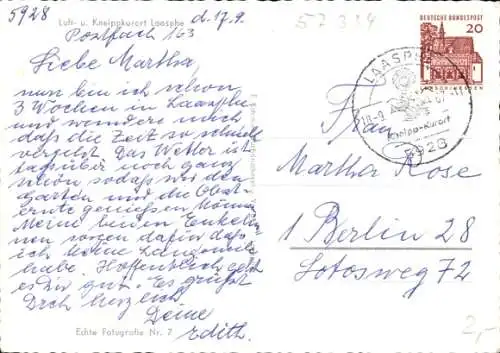 5928
Luft- u. Kneippkurort Laasphe
d. 17.9.
Postfach 163
57334
Liebe Martha,
nun bin ich schon
3 Wochen in Laasphe
und wundere mich
daß die Zeit so schnell
verfliegt. Das Wetter ist
aber noch ganz
schön sodaß wir den
Garten und die Obst-
ernte genießen können.
Meine beiden Enkelin-
nen sorgen dafür daß
ich keine Langeweile
habe. Hoffentlich geht
es Dir gut. Es grüßt
Dich herzlich
Deine
Edith.
Echte Fotografie Nr. 7
DEUTSCHE BUNDESPOST
20
LAASPHE
Kneipp-Kurort
5928
Frau
Martha Kose
1 Berlin 28
Lotosweg 72
2,-